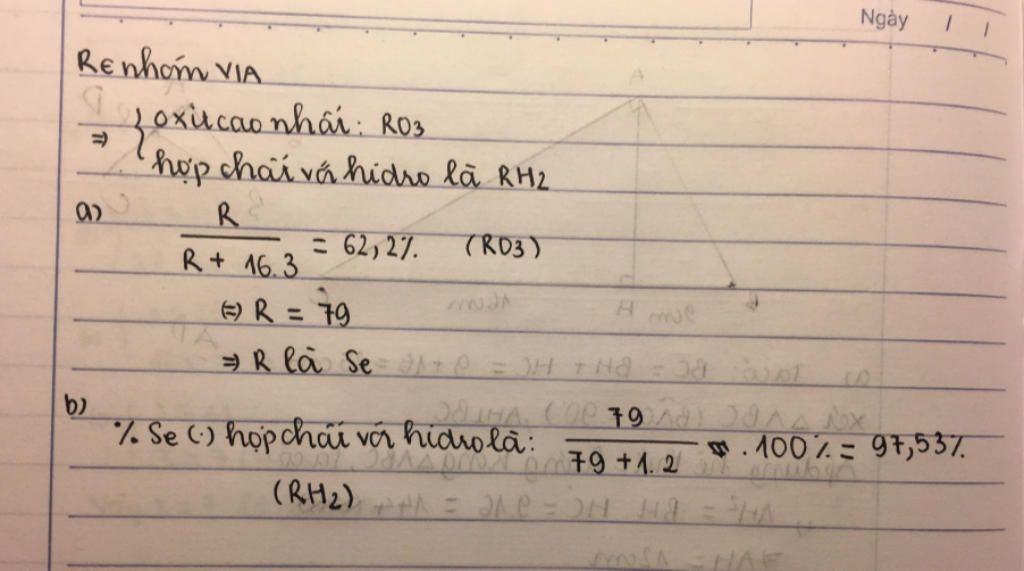 Ngày / /
R∈ nhóm VIA
⇒ { oxit cao nhất: RO3
hợp chất với hidro là RH2
a) R / (R + 16.3) = 62,2%. (RO3)
(=) R = 79
⇒ R là Se
b) % Se (.) hợp chất với hidro là: 79 / (79 + 1.2) . 100% = 97,53%
(RH2)